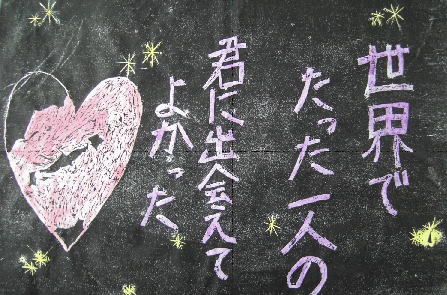 世界で
たった一人の
君に出会えて
よかった